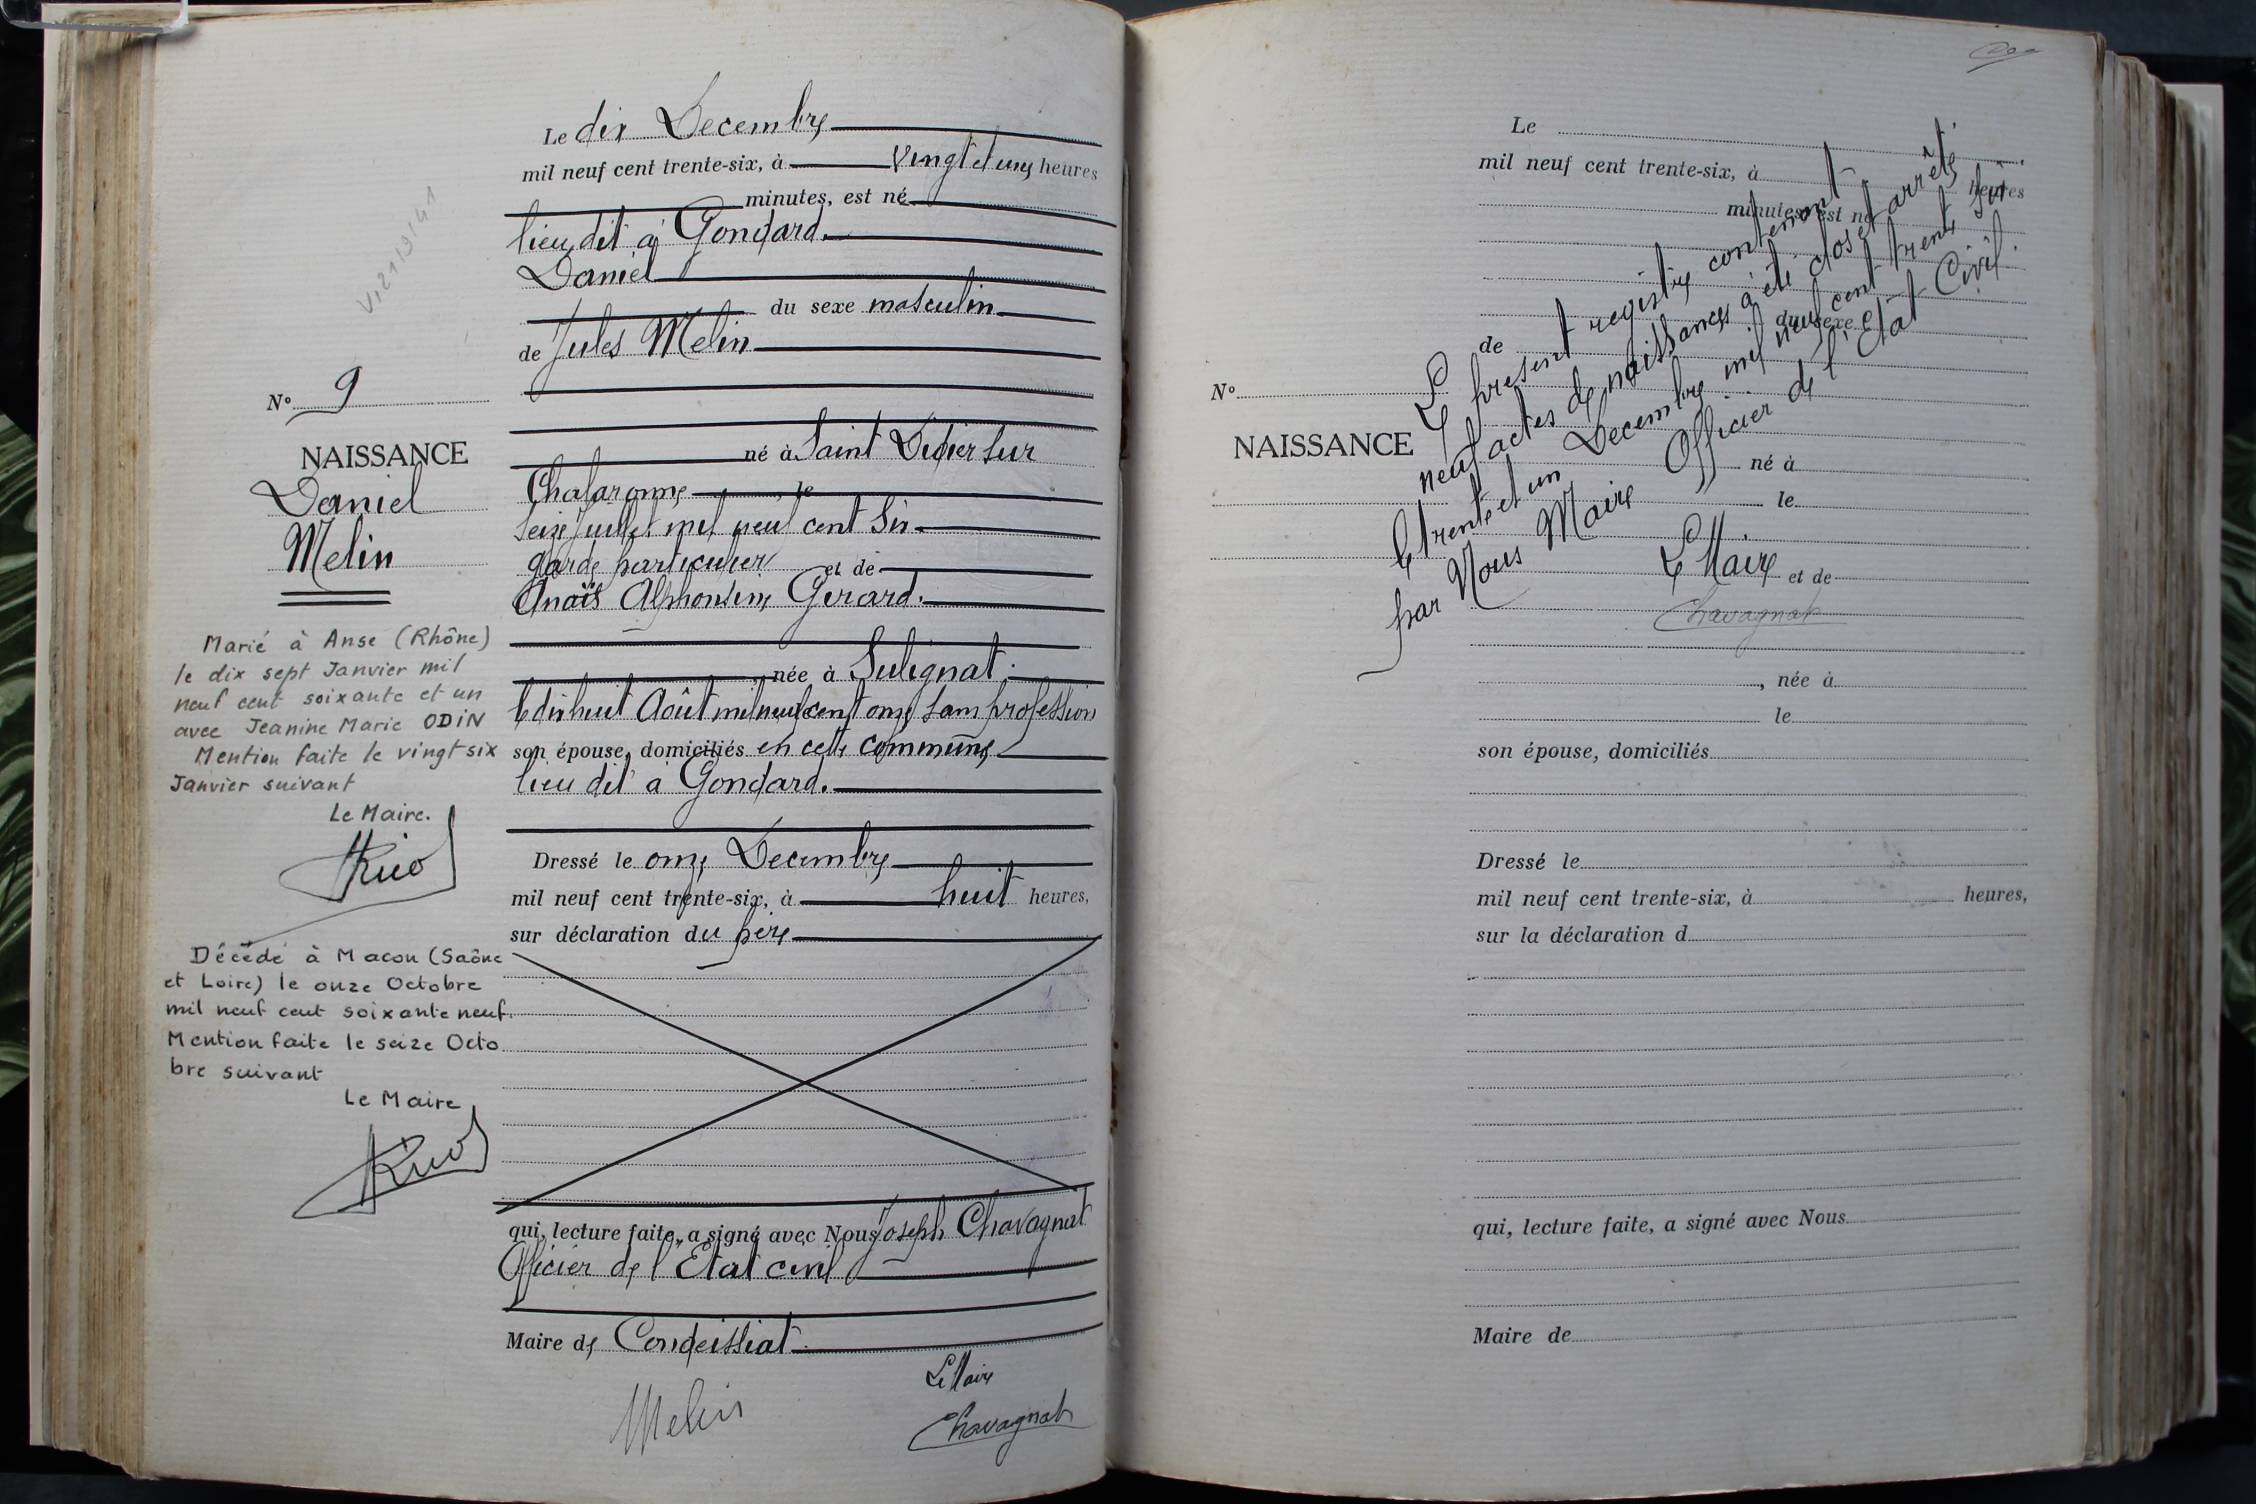 Le dix Decembre
mil neuf cent trente-six, à vingt et une heures
minutes, est né
lieu dit à Gondard.
Daniel
du sexe masculin
de Jules Melin
né à Saint Didier sur
Chalaronne, le
seize Juillet mil neuf cent six
garde particulier et de
Anaïs Alphonsine Gerard.
, née à Sulignat;
le dix huit Août mil neuf cent onze sans profession
son épouse, domiciliés en cette commune
lieu dit à Gondard.
Dressé le onze Decembre
mil neuf cent trente-six, à huit heures,
sur déclaration du père
qui, lecture faite, a signé avec Nous Joseph Chavagnat
Officier de l'Etat civil
Maire de Condeissiat
Le Maire
Melin
Chavagnat
N° 9
NAISSANCE
Daniel
Melin
Marié à Anse (Rhône)
le dix sept Janvier mil
neuf cent soixante et un
avec Jeanine Marie ODIN
Mention faite le vingt six
Janvier suivant
Le Maire.
Décédé à Macon (Saône
et Loire) le onze Octobre
mil neuf cent soixante neuf.
Mention faite le seize Octo
bre suivant
Le Maire
Le
mil neuf cent trente-six, à heures
minutes, est né
du sexe
de
N°
NAISSANCE
né à
le
et de
, née à
le
son épouse, domiciliés
Dressé le
mil neuf cent trente-six, à heures,
sur la déclaration d
qui, lecture faite, a signé avec Nous
Maire de
Le present registre contenant
neuf actes de naissances a été clos et arrêté
le trente et un Decembre mil neuf cent trente six
par Nous Maire Officier de l'Etat Civil.
Le Maire
Chavagnat